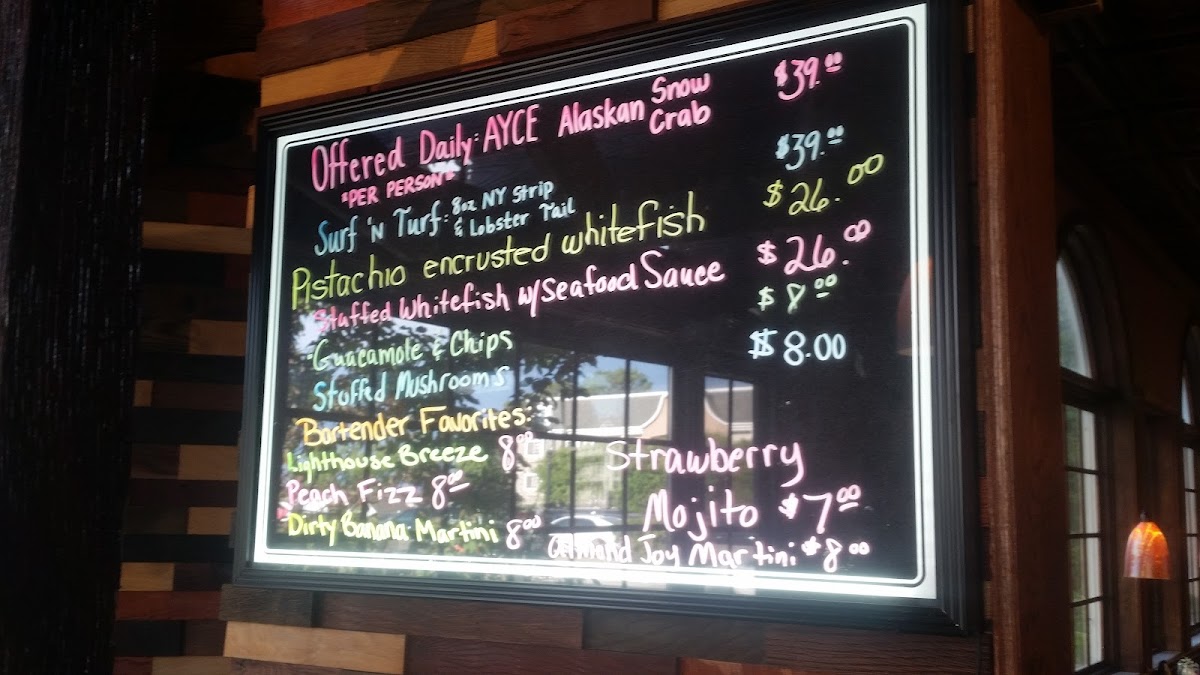 Offered Daily: AYCE Alaskan Snow Crab $39.00
*PER PERSON*
Surf 'N Turf: 8oz NY Strip & Lobster Tail $39.00
Pistachio encrusted whitefish $26.00
Stuffed Whitefish w/ Seafood Sauce $26.00
Guacamole & Chips $8.00
Stuffed Mushrooms $8.00
Bartender Favorites:
Lighthouse Breeze 8.00
Peach Fizz 8.00
Dirty Banana Martini 8.00
Strawberry
Mojito $7.00
Almond Joy Martini $8.00